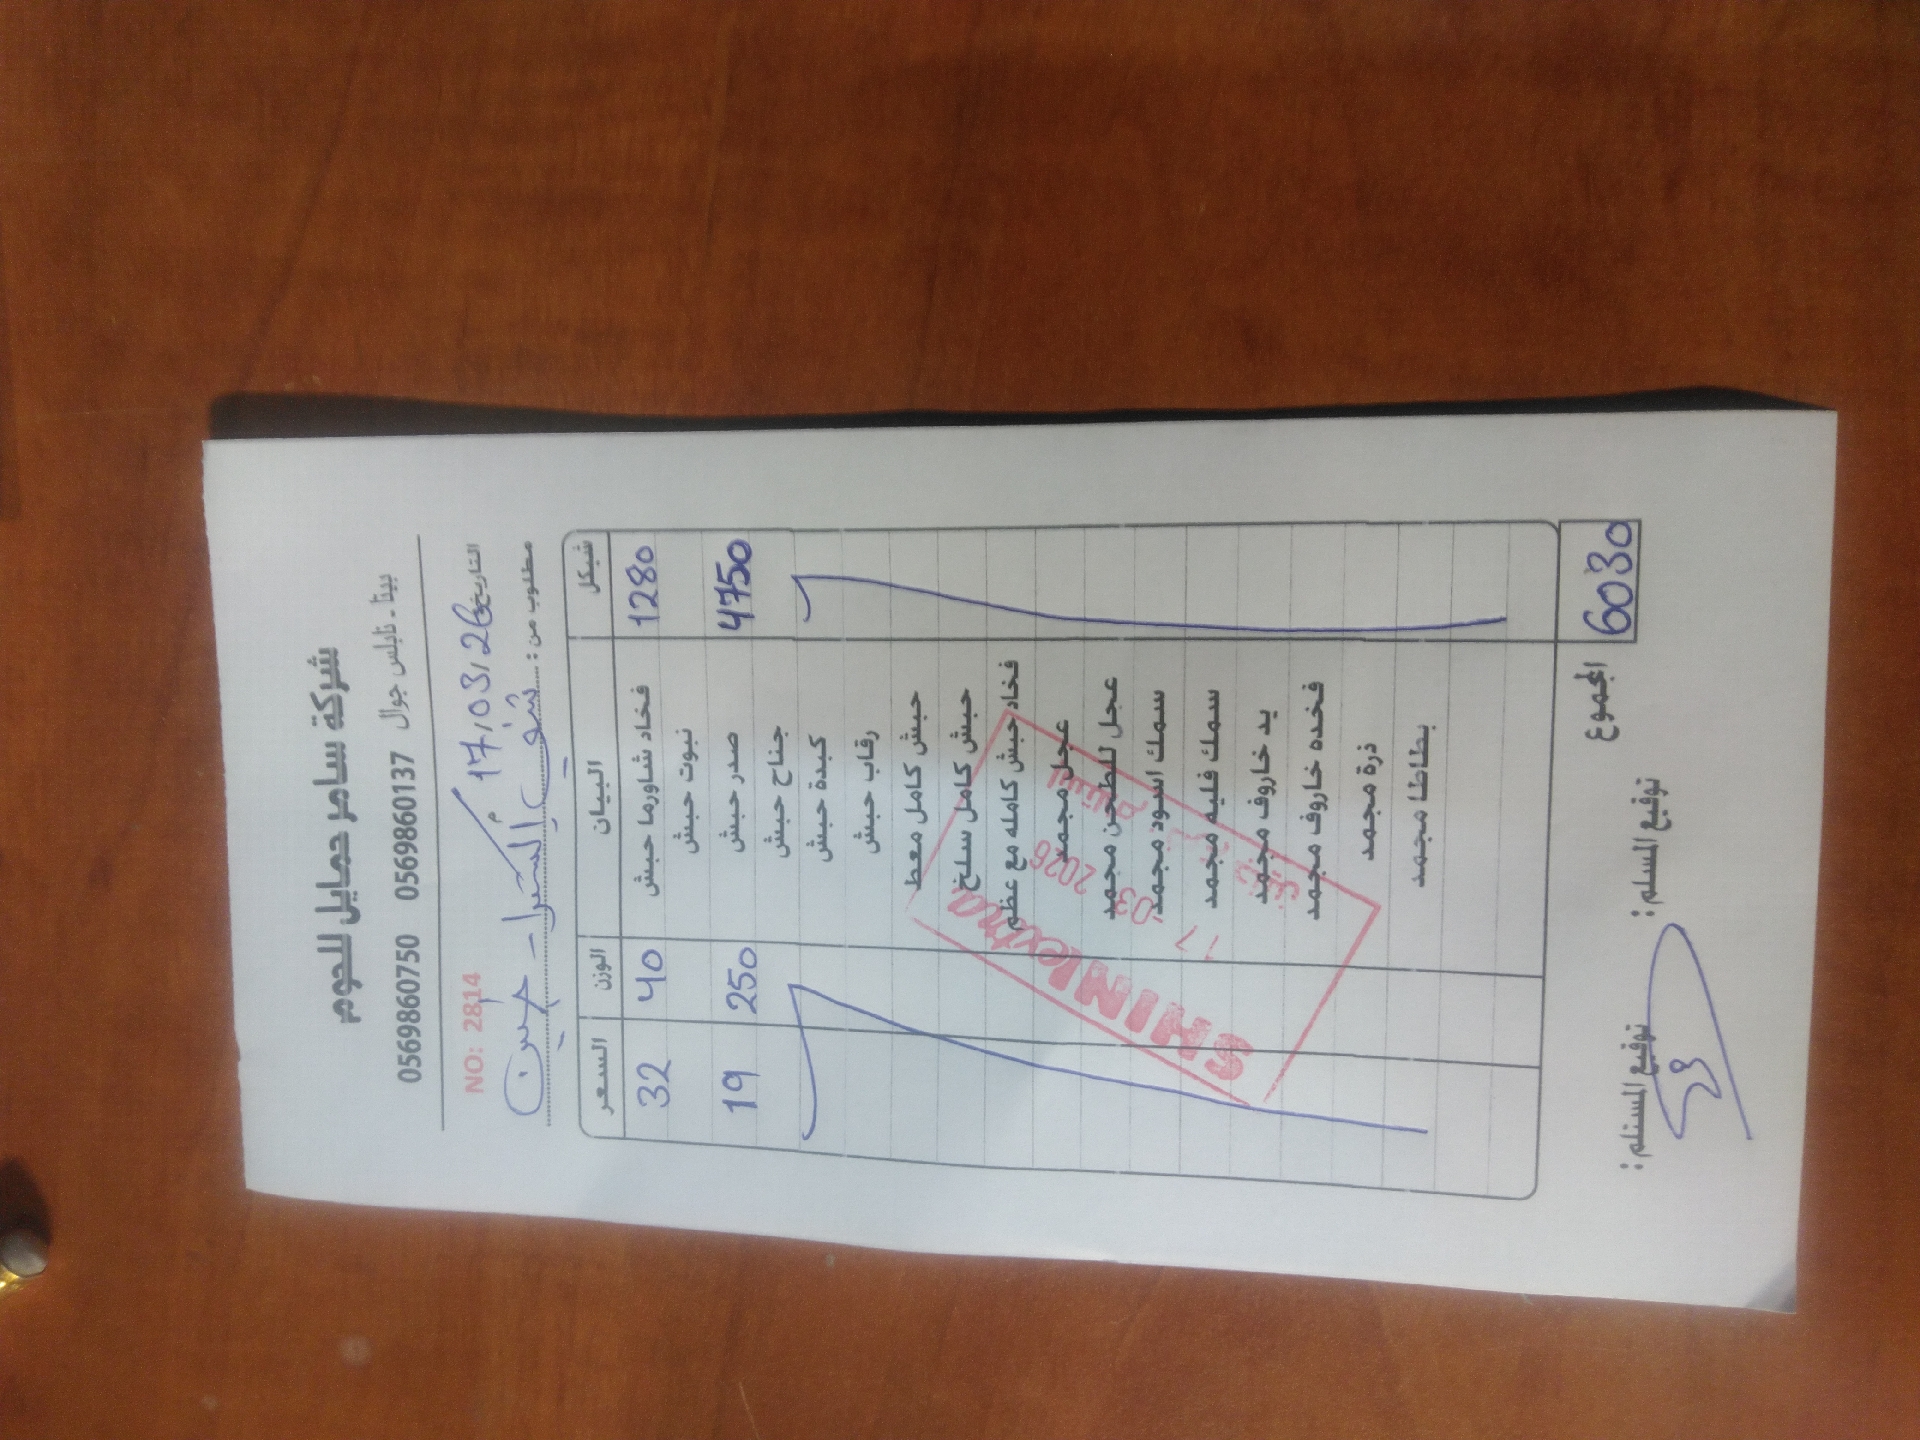 شركة سامر حمايل للحوم
بيتا - نابلس جوال 0569860137 0569860750
NO: 2814 التاريخ 17/03/26 م
مطلوب من :
السعر الوزن البيان شيكل
32 40 فخاد شاورما حبش 1280
نبوت حبش
19 250 صدر حبش 4750
جناح حبش
كبدة حبش
رقاب حبش
حبش كامل معط
حبش كامل سلخ
فخاد حبش كامله مع عظم
عجل مجمد
عجل للطحن مجمد
سمك اسود مجمد
سمك فليه مجمد
يد خاروف مجمد
فخده خاروف مجمد
ذرة مجمد
بطاطا مجمد
SHINI extra
17 -03- 2026
المجموع 6030
توقيع المستلم : توقيع المسلم :